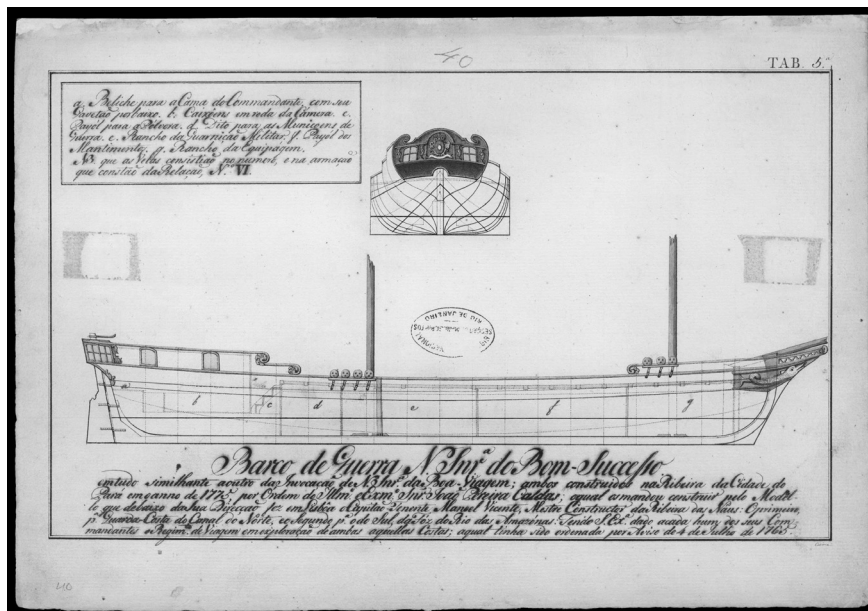 40
TAB. 5.ª
a. Beliche para a Cama do Commandante, com sua
Gavetão por baixo. b. Caixoens em roda da Câmera. c.
Payol para a Pólvora. d. Dito para as Municoens de
Guerra. e. Rancho da Guarnição Militar. f. Payol dos
Mantimentos. g. Rancho da Equipagem.
NB. que as Velas consistião no numero, e na armação
que constão da Relação, N.º VI.
BIBLIOTHECA NACIONAL
RIO DE JANEIRO
a
b
c
d
e
f
g
Barco de Guerra N. Snr.ª do Bom-Successo
em tudo similhante a outro da Invocação de N. Snr.ª da Boa-Viagem; ambos construidos na Ribeira da Cidade do
Pará em o anno de 1775, por Ordem do Illm.º e Exm.º Snr. João Pereira Caldas; o qual as mandou construir pelo Model-
lo que debaixo da sua Direcção fez em Lisboa o Capitão Tenente Manuel Vicente, Mestre Constructor da Ribeira das Náus: O primeiro,
p.ª Guarda-Costa do Canal do Norte, e o Segundo p.ª o do Sul, da Foz do Rio das Amazonas: Tendo S. Ex.ª dado a cada hum dos seus Com-
mandantes o Regim.to de Viagem em exploração de ambas aquellas Costas; a qual tinha sido ordenada por Aviso de 4 de Julho de 1765.
40